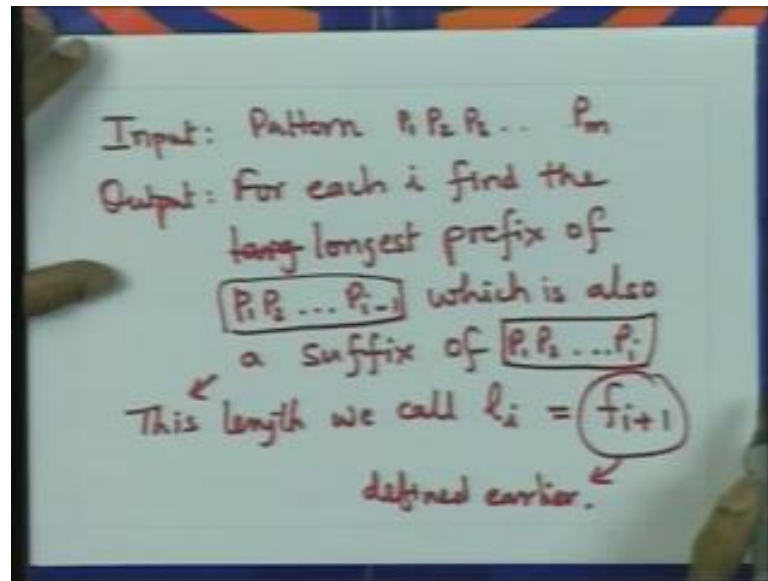 Input: Pattern P₁ P₂ P₂ .. Pₘ
Output: For each i find the
longest prefix of
P₁ P₂ ... Pᵢ₋₁ which is also
a suffix of P₁ P₂ ... Pᵢ
This length we call lᵢ = fᵢ₊₁
defined earlier.